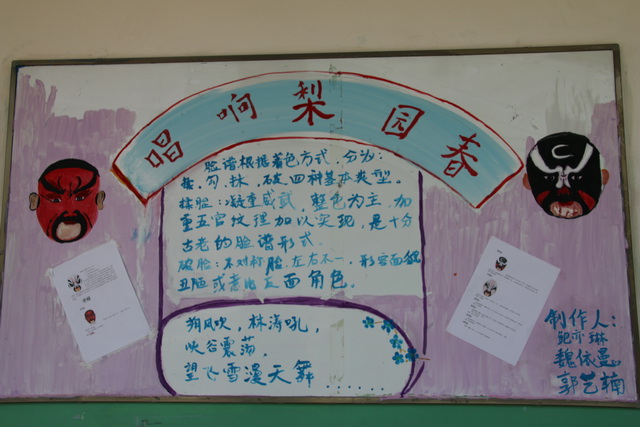 唱响梨园春
脸谱根据着色方式,分为:
揉、勾、抹、破四种基本类型。
揉脸:凝重威武,整色为主,加
重五官纹理加以实现,是十分
古老的脸谱形式.
破脸:不对称脸,左右不一,形容面貌
丑陋或者比反面角色。
朔风吹,林涛吼,
峡谷震荡.
望飞雪漫天舞......
制作人:
魏依曼
郭艺楠